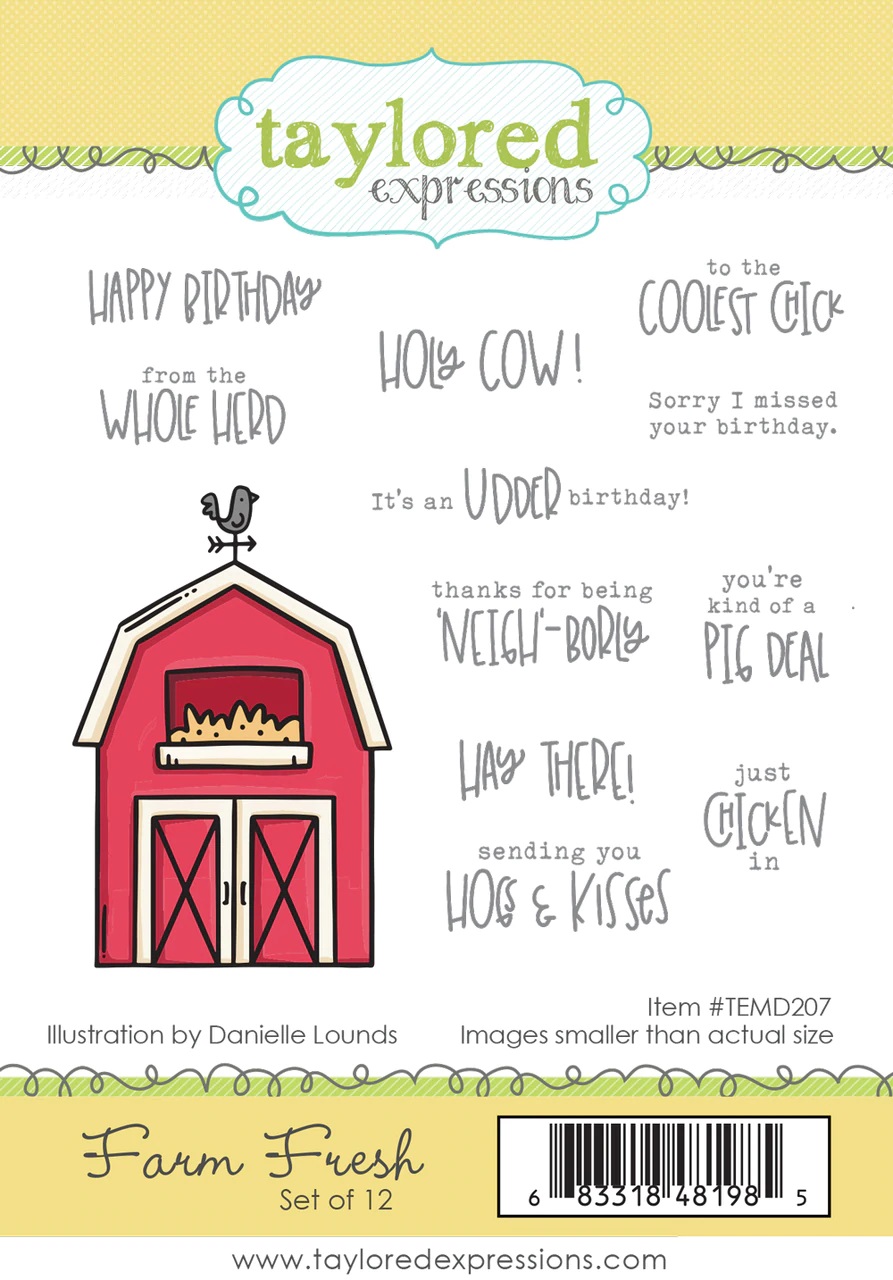 taylored
expressions
HAPPY BIRTHDAY
to the
COOLEST CHICK
HOLY COW!
from the
WHOLE HERD
Sorry I missed
your birthday.
It's an UDDER birthday!
thanks for being
'NEIGH'-BORLY
you're
kind of a
PIG DEAL
HAY THERE!
just
CHICKEN
in
sending you
HOGS & KISSES
Item #TEMD207
Illustration by Danielle Lounds
Images smaller than actual size
Farm Fresh
Set of 12
6 83318 48198 5
www.tayloredexpressions.com